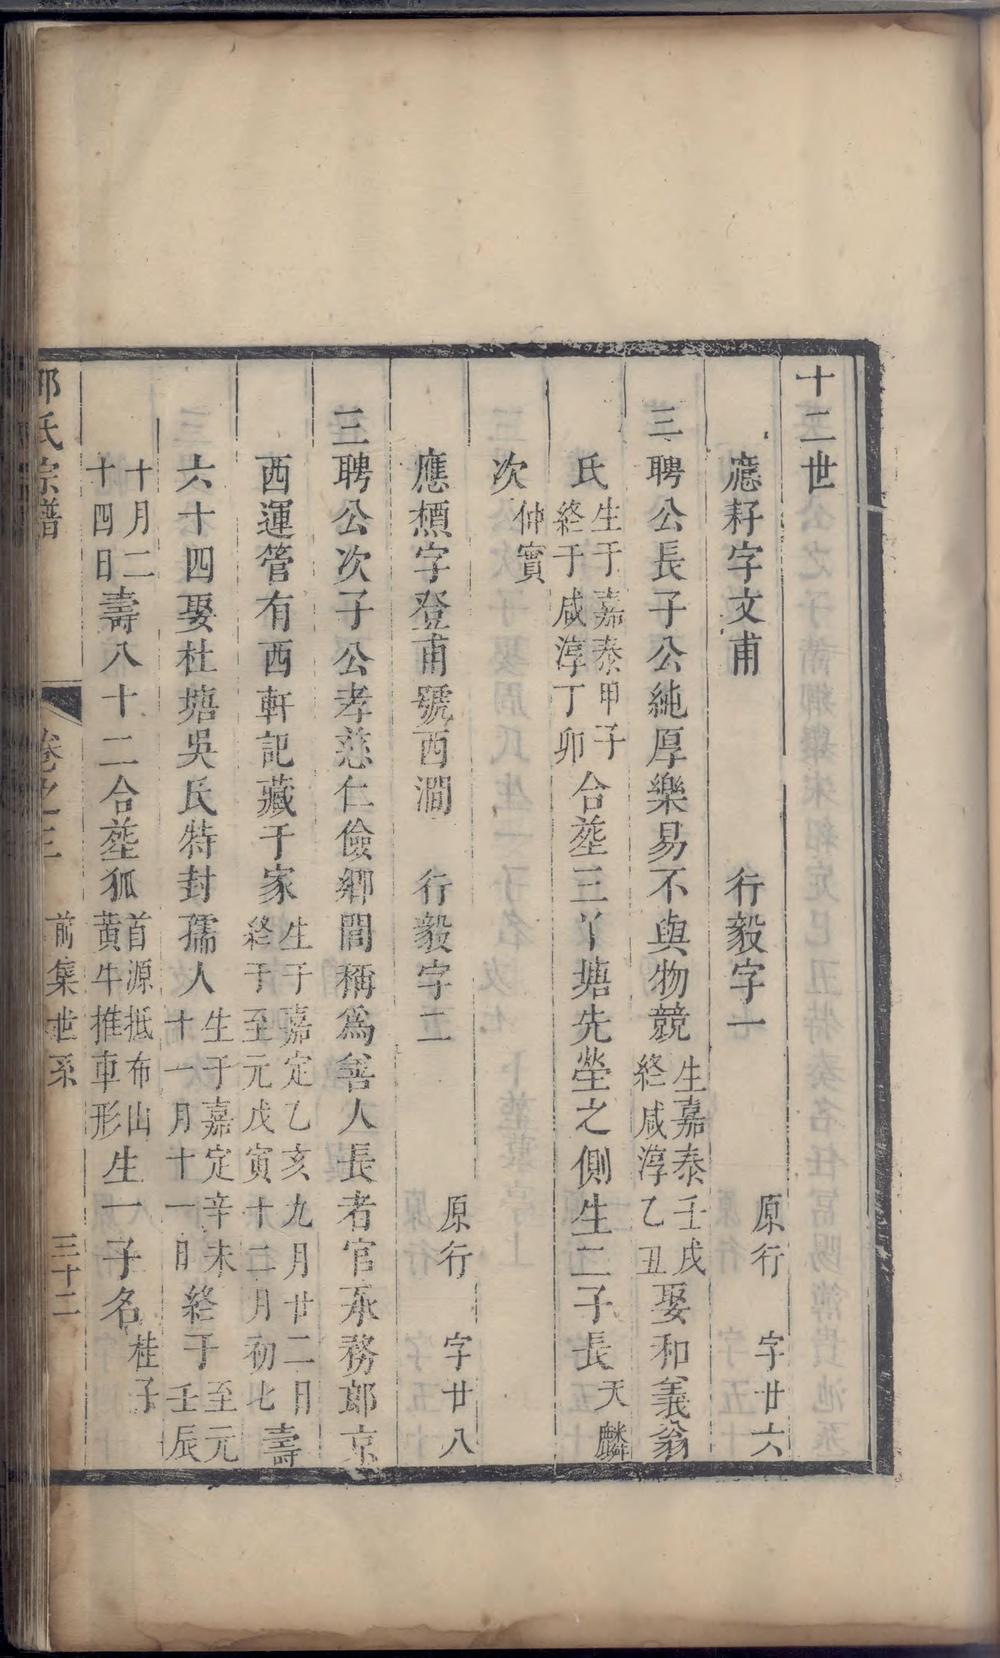 十二世
應耔字文甫　行毅字一　原行　字廿六
三聘公長子公純厚樂易不與物競生嘉泰壬戌終咸淳乙丑娶和義翁
氏生于嘉泰甲子終于咸淳丁卯合塟三丫塘先塋之側生二子長天麟
次仲實
應槚字登甫號西澗　行毅字二　原行　字廿八
三聘公次子公孝慈仁儉鄉閭稱爲善人長者官承務郎京
西運管有西軒記藏于家生于嘉定乙亥九月廿二日終于至元戊寅十二月初七壽
六十四娶杜塘吳氏特封孺人生于嘉定辛未十一月十一日終于至元壬辰
十月二十四日壽八十二合塟狐首源抵布山黄牛推車形生一子名桂子
氏宗譜　卷之三　前集世系　三十二